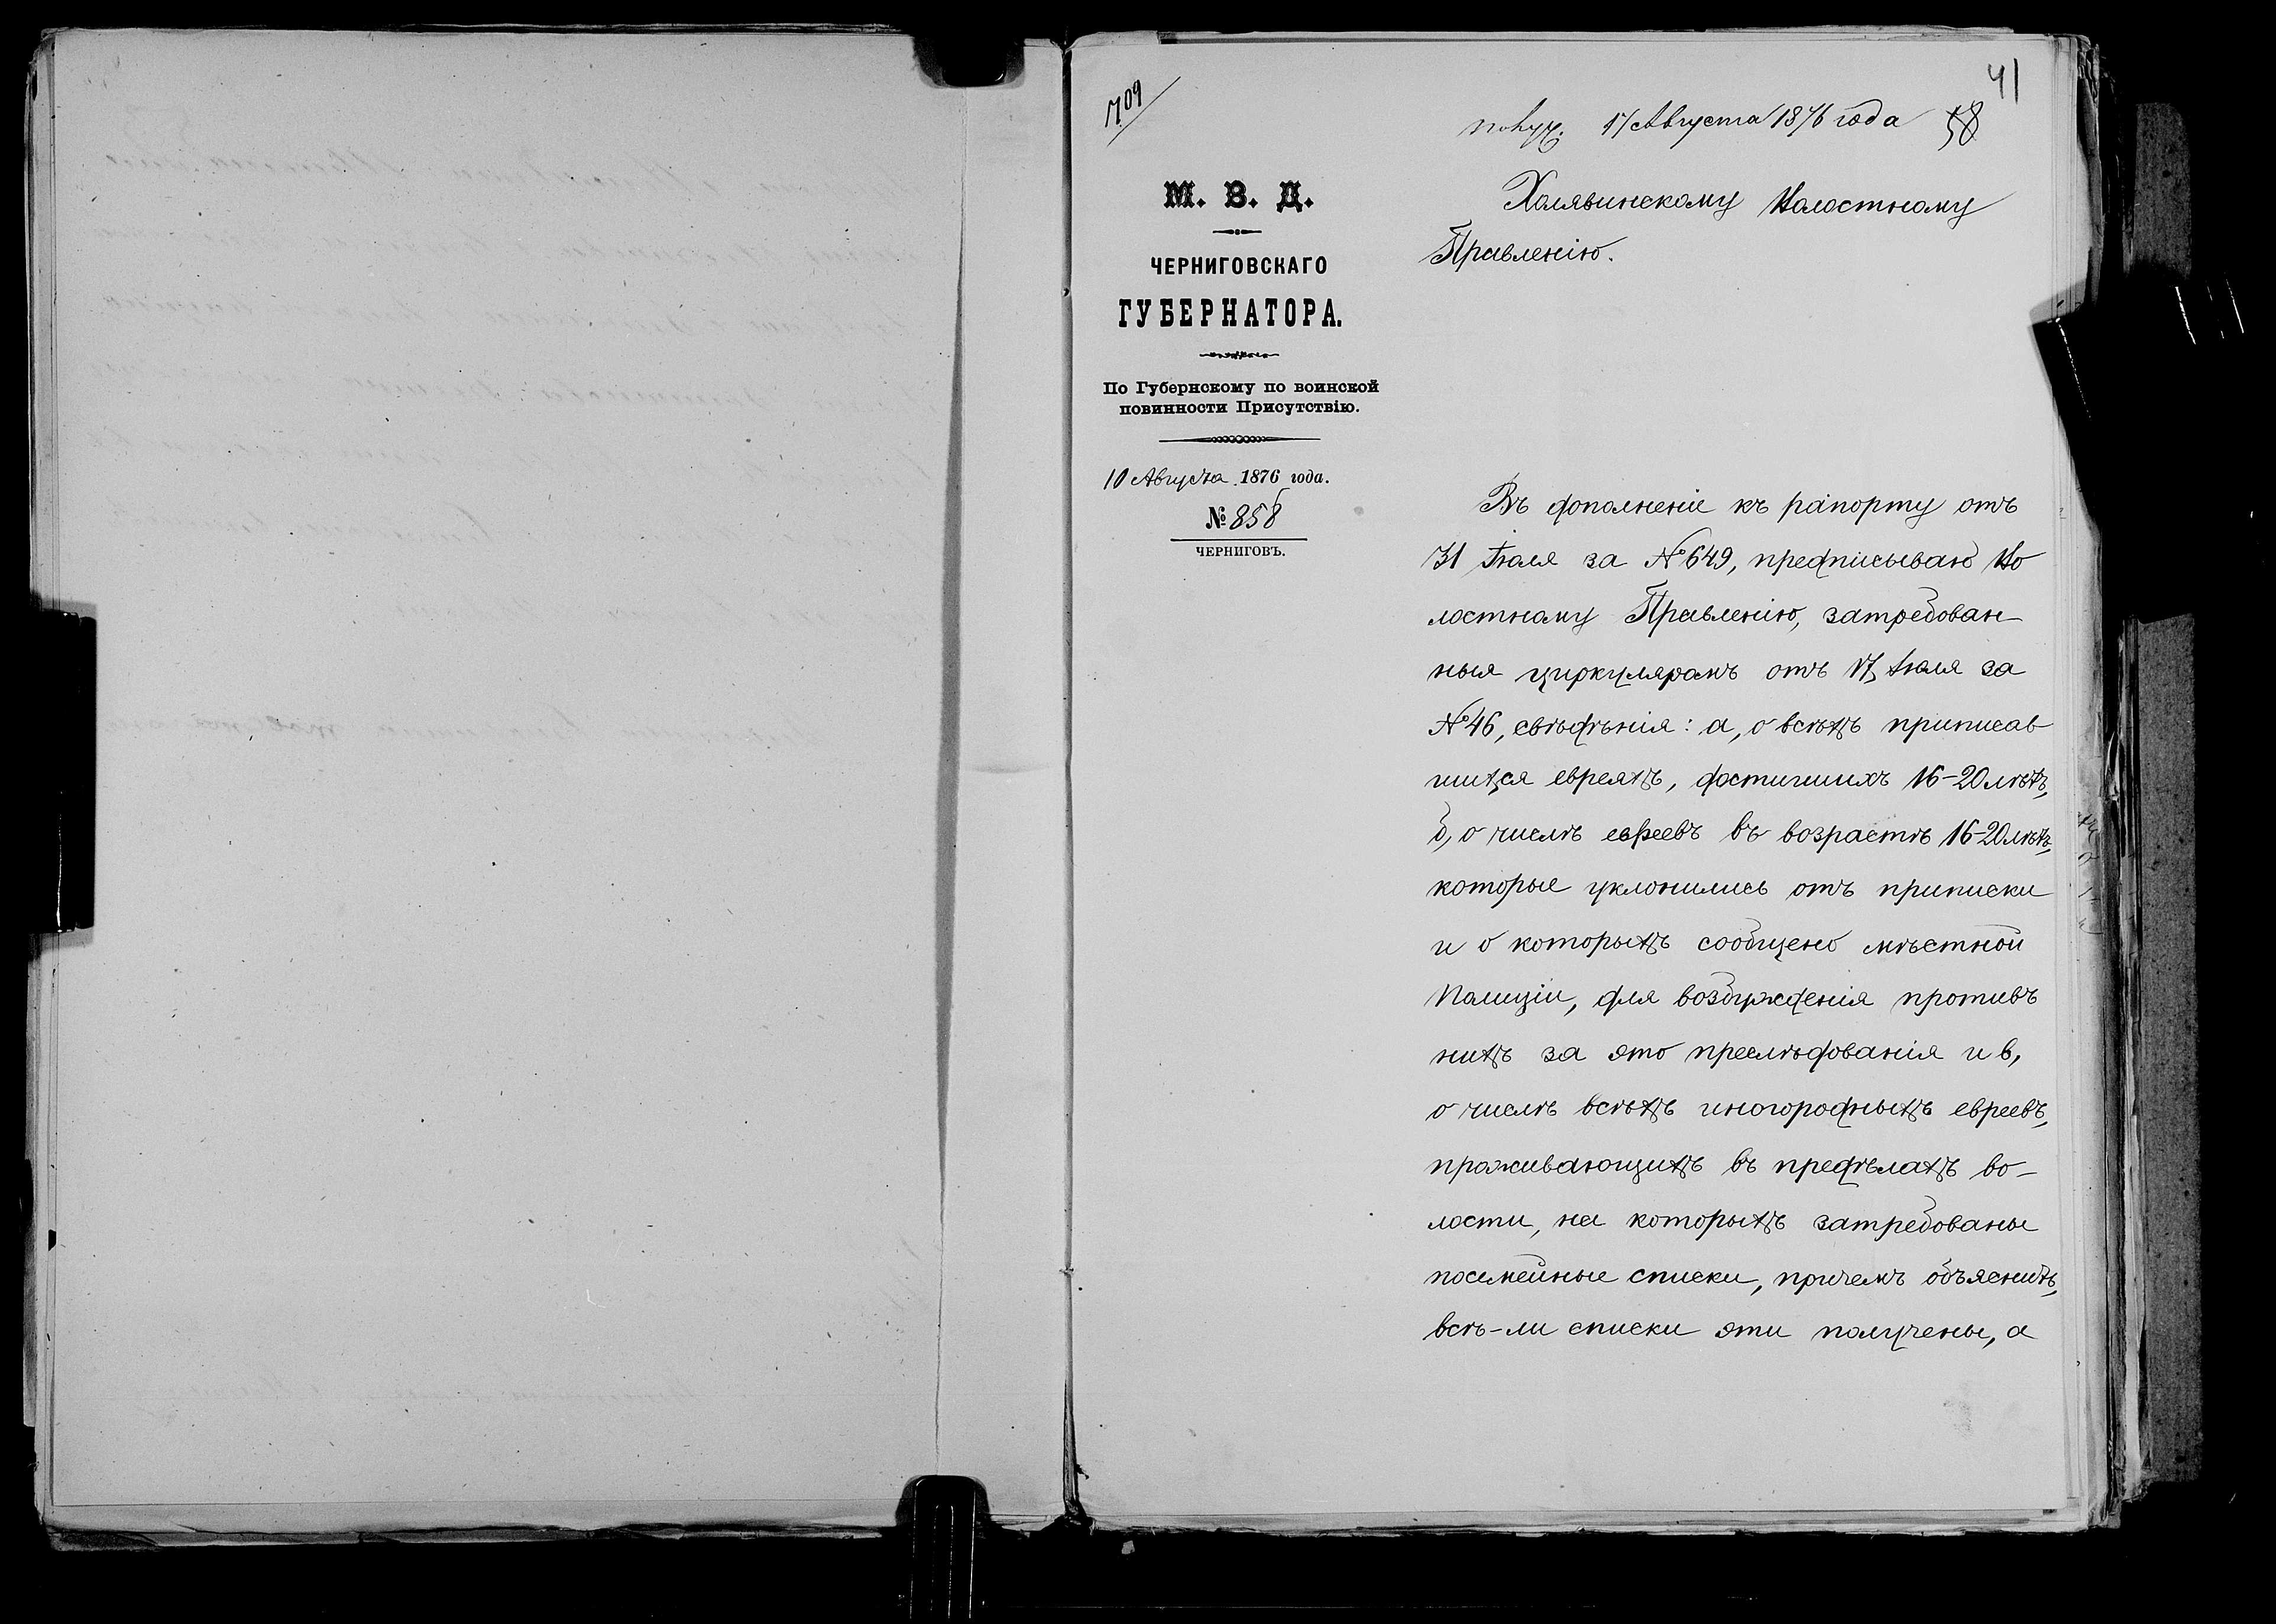 1709
41
получ. 17 Августа 1876 года 58
М. В. Д.
ЧЕРНИГОВСКАГО
ГУБЕРНАТОРА.
По Губернскому по воинской
повинности Присутствію.
10 Августа 1876 года.
№ 858
ЧЕРНИГОВЪ.
Холявинскому Волостному
Правленію.
Въ дополненіе къ рапорту отъ
31 Іюля за № 649, предписываю Во
лостному Правленію, затребован-
ныя циркуляромъ отъ 17 Іюля за
№ 46, свѣдѣнія: а, о всѣхъ приписав
шихся евреяхъ, достигшихъ 16-20 лѣтъ,
б, о числѣ евреевъ въ возрастѣ 16-20 лѣтъ,
которые уклонились отъ приписки
и о которыхъ сообщено мѣстной
Полиціи, для возбужденія противъ
нихъ за это преслѣдованія и в,
о числѣ всѣхъ иногородныхъ евреевъ,
проживающихъ въ предѣлахъ во-
лости, на которыхъ затребованы
посемейные списки, причемъ объяснить,
всѣ-ли списки эти получены, а